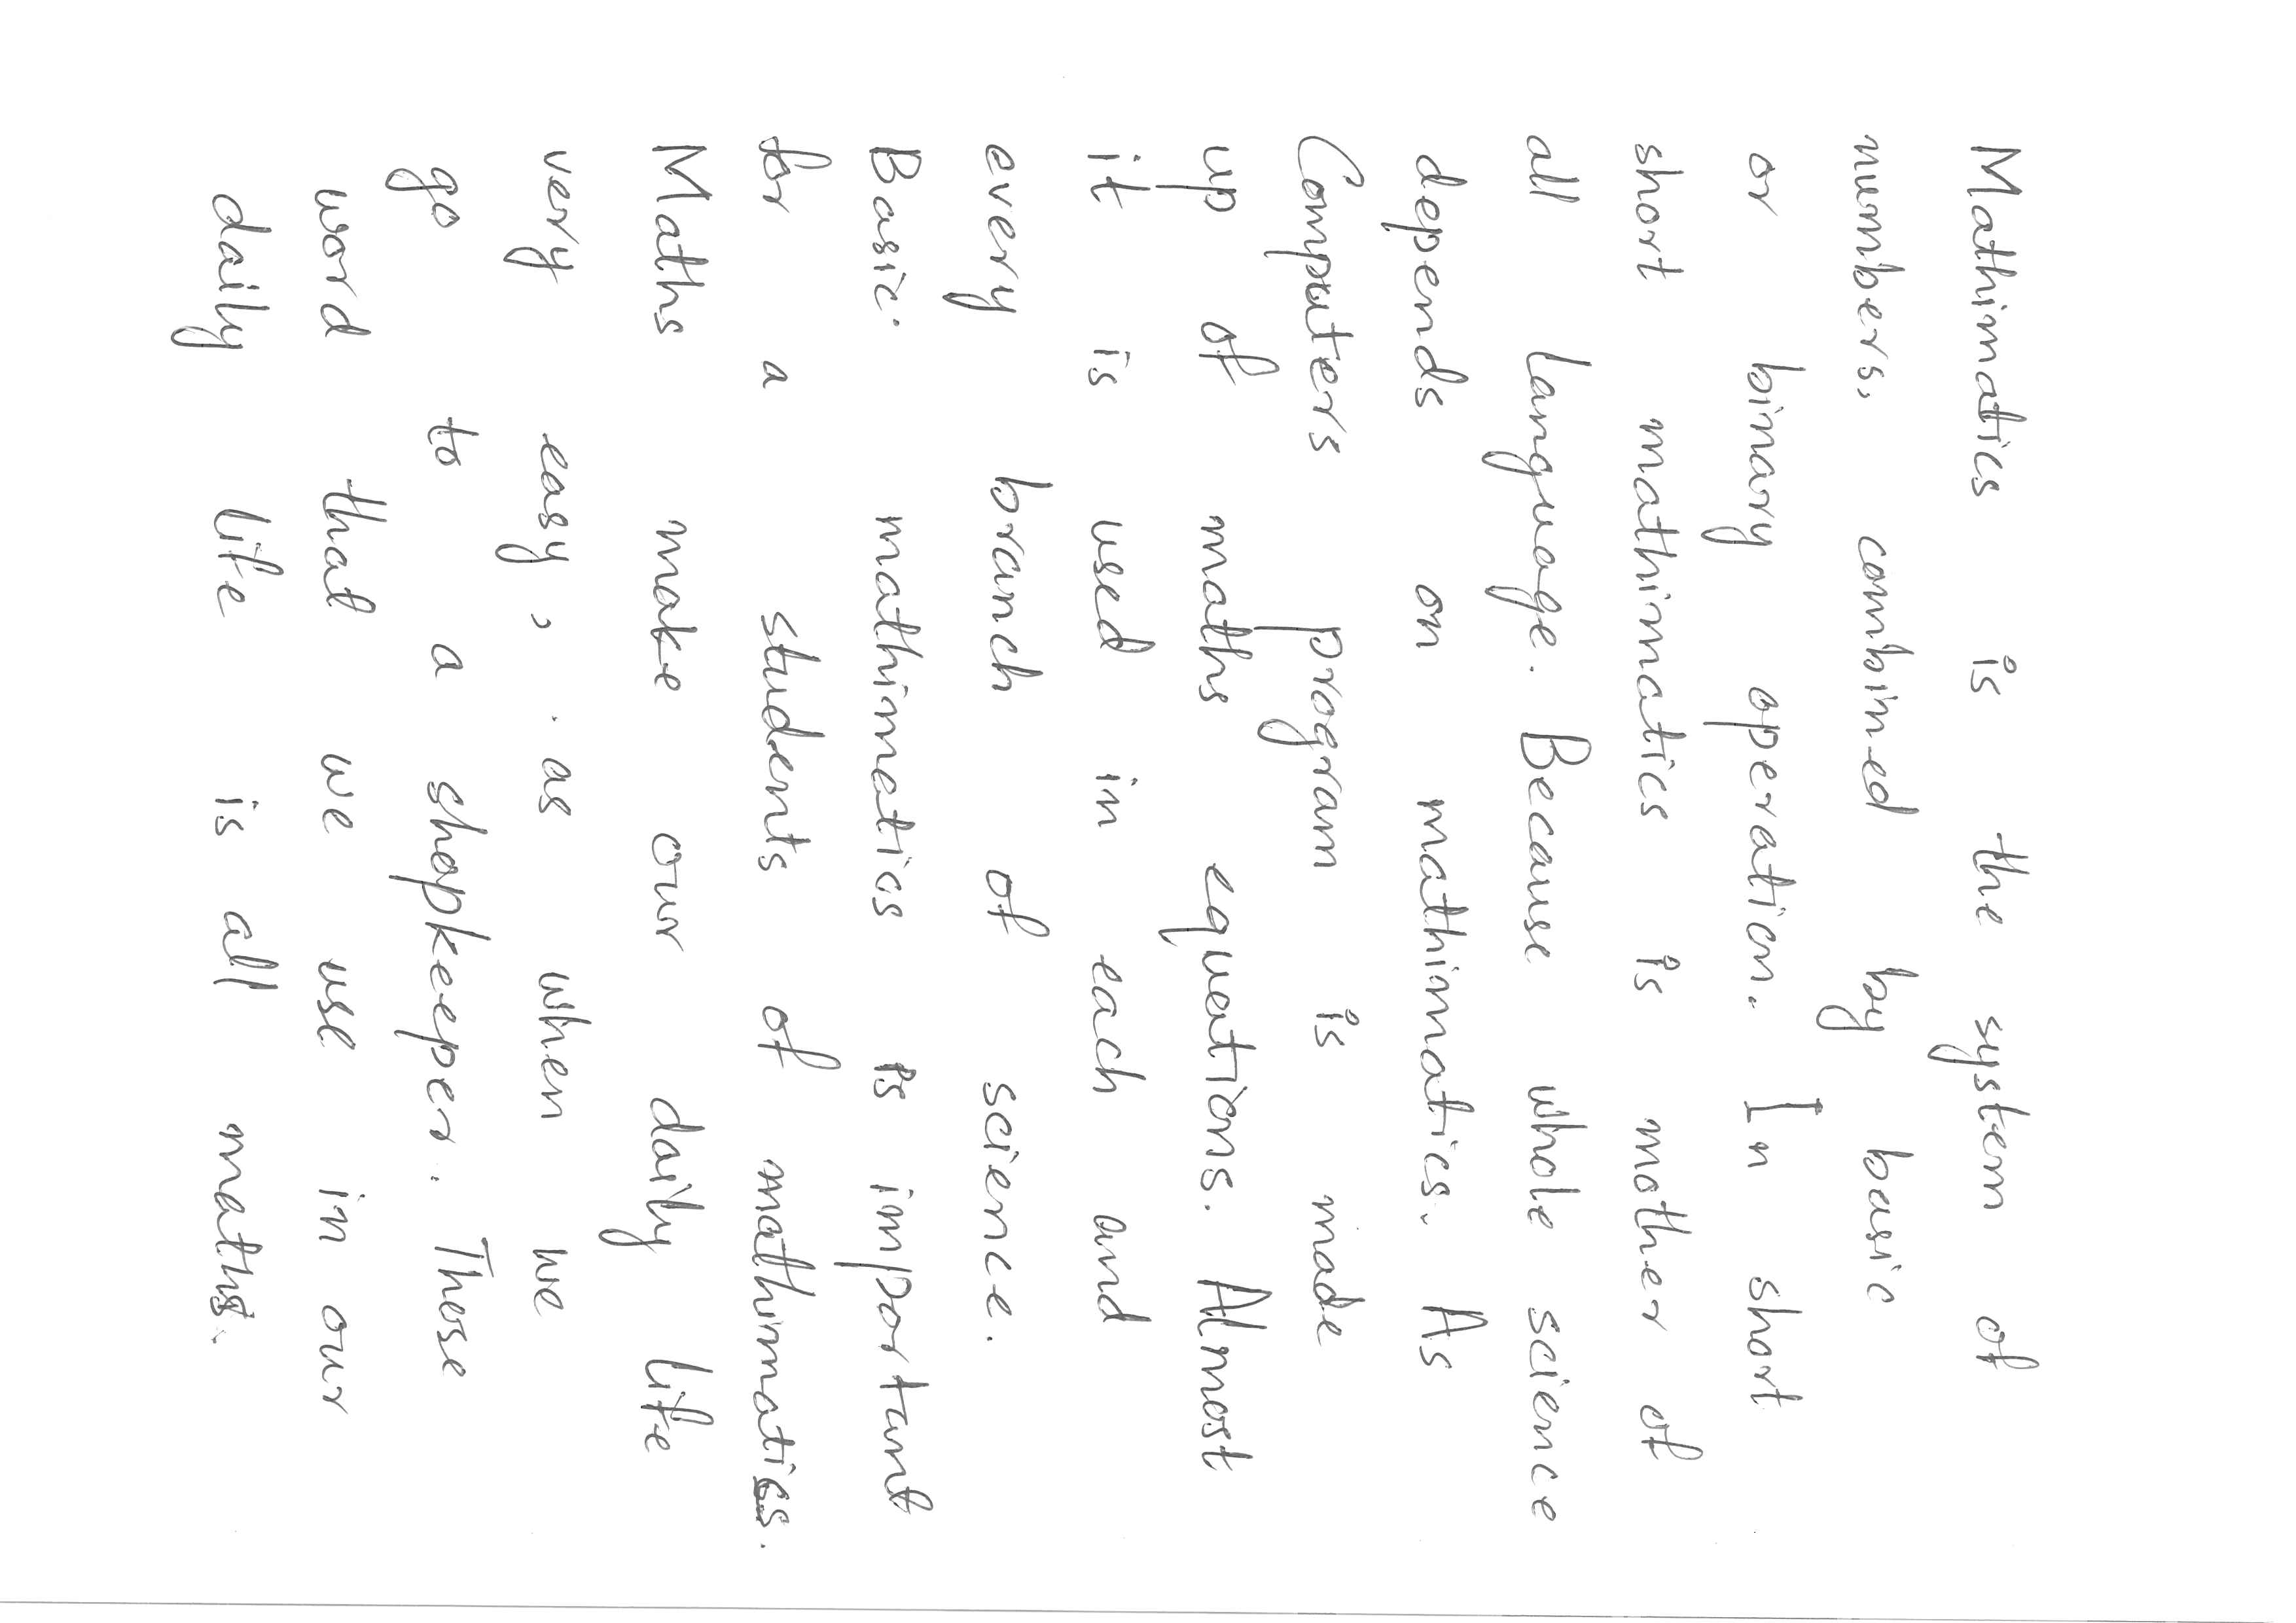 Mathimatics is the system of
numbers, combined by basic
or binary operation. In short
short mathimatics is mother of
all language. Because whole science
depends on mathimatics. As
Computers program is made
up of maths equations. Almost
it is used in each and
every branch of science.
Basic mathimatics is important
for a students of mathimatics.
Maths make our daily life
very easy, as when we
go to a shopkeeper. These
word that we use in our
daily life is all maths.